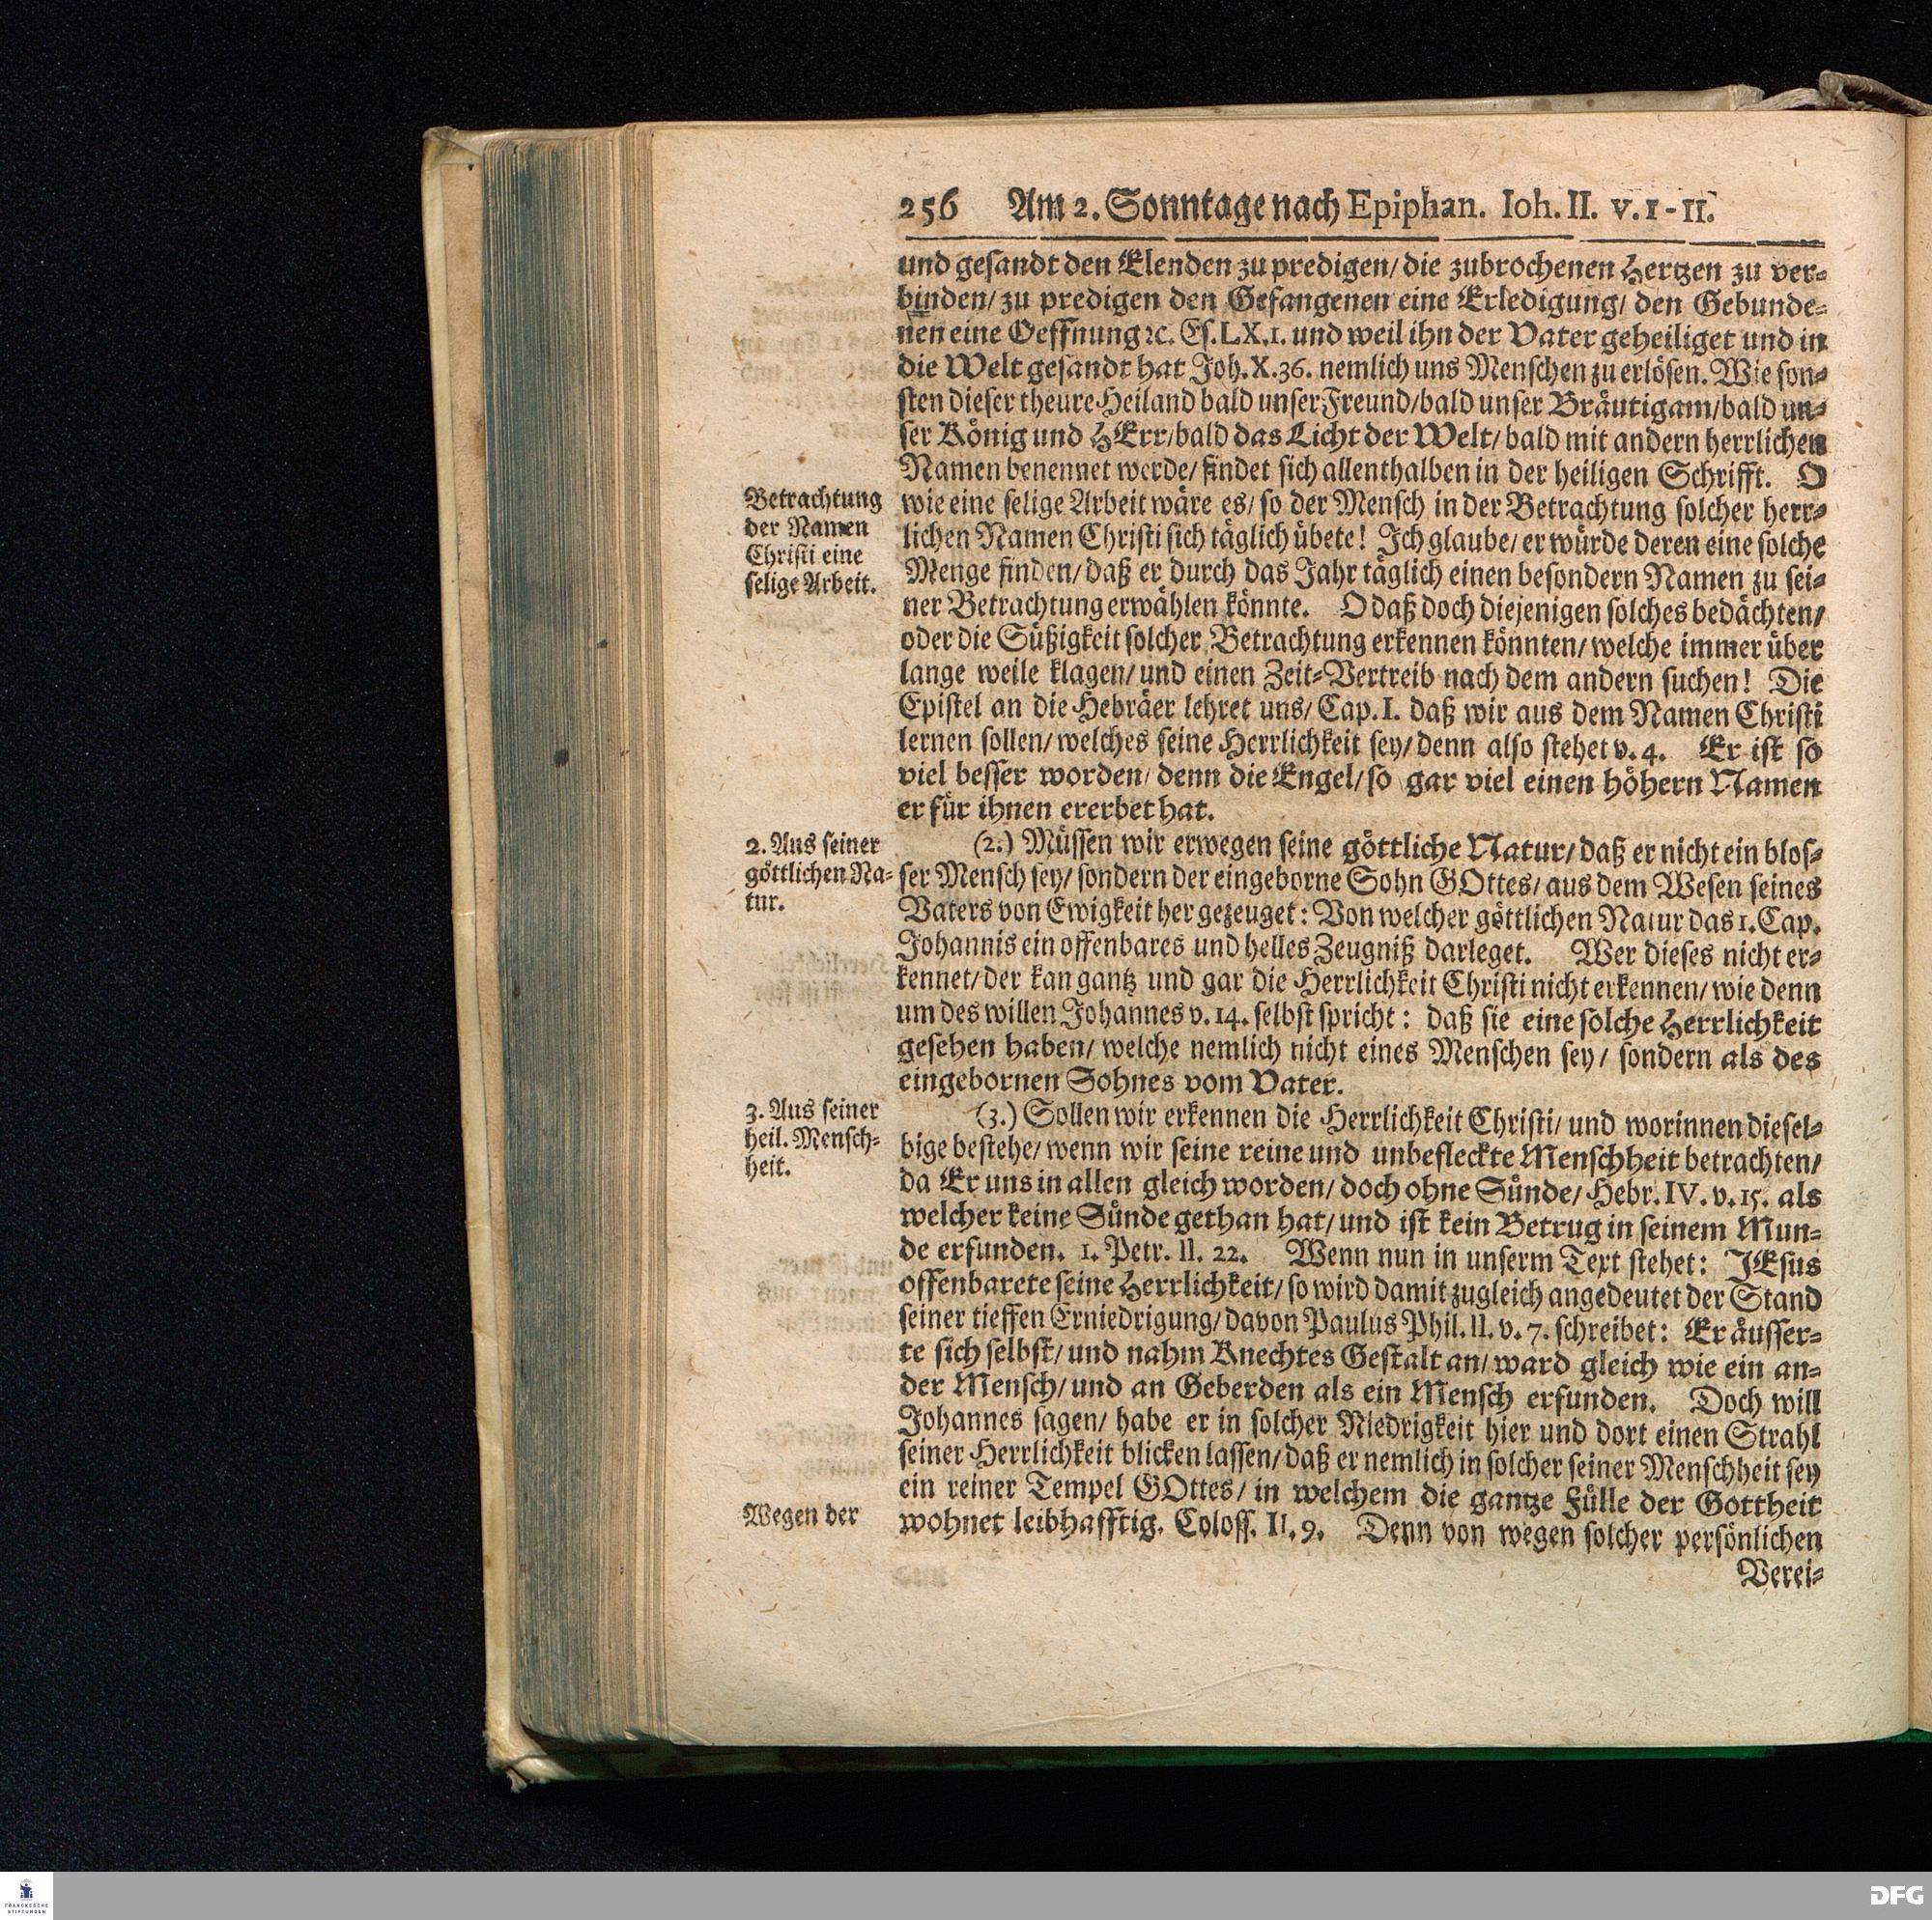 256 Am 2. Sonntage nach Epiphan. Ioh. II. v. 1-11.
und gesandt den Elenden zu predigen/ die zubrochenen Hertzen zu ver-
binden/ zu predigen den Gefangenen eine Erledigung/ den Gebunde-
nen eine Oeffnung ꝛc. Es. LX, 1. und weil ihn der Vater geheiliget und in
die Welt gesandt hat Joh. X. 36. nemlich uns Menschen zu erlösen. Wie son-
sten dieser theure Heiland bald unser Freund/ bald unser Bräutigam/ bald un-
ser König und HErr/ bald das Licht der Welt/ bald mit andern herrlichen
Namen benennet werde/ findet sich allenthalben in der heiligen Schrifft. O
Betrachtung
der Namen
Christi eine
selige Arbeit.
wie eine selige Arbeit wäre es/ so der Mensch in der Betrachtung solcher herr-
lichen Namen Christi sich täglich übete! Ich glaube/ er würde deren eine solche
Menge finden/ daß er durch das Jahr täglich einen besondern Namen zu sei-
ner Betrachtung erwählen könnte. O daß doch diejenigen solches bedächten/
oder die Süßigkeit solcher Betrachtung erkennen könnten/ welche immer über
lange weile klagen/ und einen Zeit-Vertreib nach dem andern suchen! Die
Epistel an die Hebräer lehret uns/ Cap. I. daß wir aus dem Namen Christi
lernen sollen/ welches seine Herrlichkeit sey/ denn also stehet v. 4. Er ist so
viel besser worden/ denn die Engel/ so gar viel einen höhern Namen
er für ihnen ererbet hat.
2. Aus seiner
göttlichen Na-
tur.
(2.) Müssen wir erwegen seine göttliche Natur/ daß er nicht ein blos-
ser Mensch sey/ sondern der eingeborne Sohn GOttes/ aus dem Wesen seines
Vaters von Ewigkeit her gezeuget: Von welcher göttlichen Natur das 1. Cap.
Johannis ein offenbares und helles Zeugniß darleget. Wer dieses nicht er-
kennet/ der kan gantz und gar die Herrlichkeit Christi nicht erkennen/ wie denn
um des willen Johannes v. 14. selbst spricht: daß sie eine solche Herrlichkeit
gesehen haben/ welche nemlich nicht eines Menschen sey/ sondern als des
eingebornen Sohnes vom Vater.
3. Aus seiner
heil. Mensch-
heit.
(3.) Sollen wir erkennen die Herrlichkeit Christi/ und worinnen diesel-
bige bestehe/ wenn wir seine reine und unbefleckte Menschheit betrachten/
da Er uns in allen gleich worden/ doch ohne Sünde/ Hebr. IV. v. 15. als
welcher keine Sünde gethan hat/ und ist kein Betrug in seinem Mun-
de erfunden. 1. Petr. II. 22. Wenn nun in unserm Text stehet: JEsus
offenbarete seine Herrlichkeit/ so wird damit zugleich angedeutet der Stand
seiner tieffen Erniedrigung/ davon Paulus Phil. II. v. 7. schreibet: Er äusser-
te sich selbst/ und nahm Knechtes Gestalt an/ ward gleich wie ein an-
der Mensch/ und an Geberden als ein Mensch erfunden. Doch will
Johannes sagen/ habe er in solcher Niedrigkeit hier und dort einen Strahl
seiner Herrlichkeit blicken lassen/ daß er nemlich in solcher seiner Menschheit sey
ein reiner Tempel GOttes/ in welchem die gantze Fülle der Gottheit
Wegen der
wohnet leibhafftig. Coloss. II. 9. Denn von wegen solcher persönlichen
Verei-
FRANCKESCHE
STIFTUNGEN
DFG